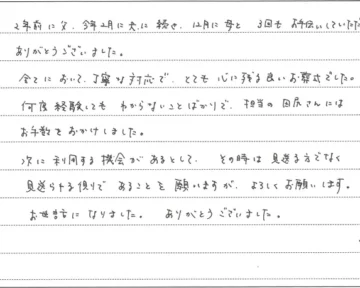 2年前に父、今年2月に夫に続き、12月に母と 3回もお手伝いしていただ
ありがとうございました。
全てにおいて、丁寧な対応で、とても心に残る良いお葬式でした。
何度経験しても わからないことばかりで、担当の田尻さんには
お手数をおかけしました。
次に利用する機会があるとして、その時は見送る方でなく
見送られる側りであることを願いますが、よろしくお願いします。
お世話になりました。 ありがとうございました。